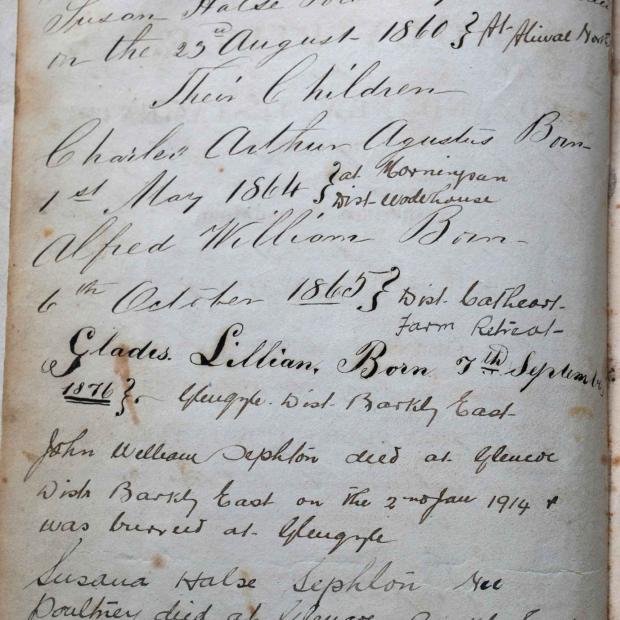 Susan Halse
on the 23rd August 1860 } At Aliwal North
Their Children
Charles Arthur Agustus Born
1st May 1864 } at Morningsun
Dist Wodehouse
Alfred William Born
6th October 1865 } Dist. Cathcart
Farm Retreat
Glades. Lillian, Born 7th Septemb
1876 } Glengyle. Dist. Barkly East
John William Sephton died at Glencoe
Dist Barkly East on the 2nd Jan 1914 &
was burried at Glengyle
Susana Halse Sephton Nee
Poultney died at Glencoe